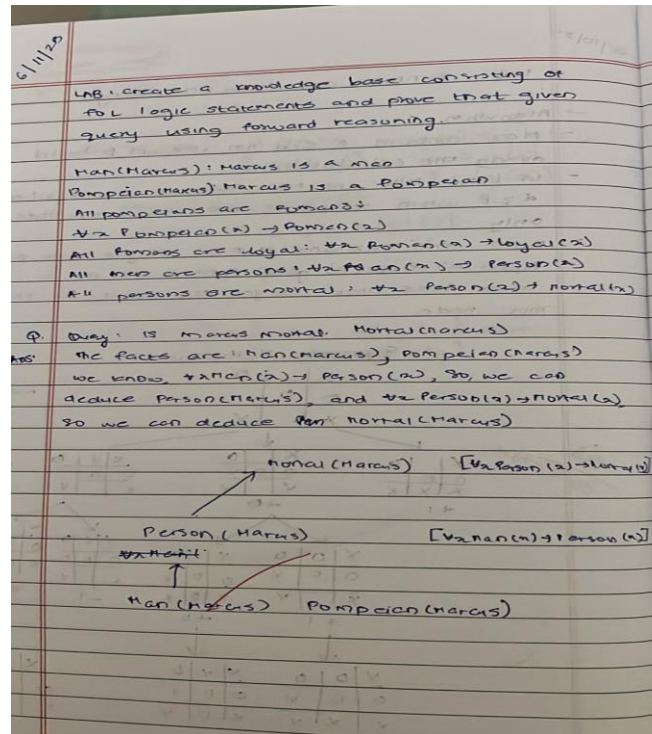 6/11/25
LAB: create a knowledge base consisting of
FOL logic statements and prove that given
query using forward reasoning.
Man(Marcus): Marcus is a man
Pompeian(Marcus): Marcus is a Pompeian
All pompeians are Romans:
∀x Pompeian(x) → Roman(x)
All Romans are loyal: ∀x Roman(x) → loyal(x)
All men are persons: ∀x Man(x) → Person(x)
All persons are mortal: ∀x Person(x) → Mortal(x)
Q. Query: is marcus mortal. Mortal(marcus)
Ans. The facts are: Man(marcus), Pompeian(marcus)
we know, ∀x Men(x) → Person(x), so, we can
deduce Person(Marcus), and ∀x Person(x) → mortal(x)
so we can deduce mortal(Marcus)
mortal(Marcus) [∀x Person(x) → mortal(x)]
Person(Marcus) [∀x man(x) → Person(x)]
Man(Marcus) Pompeian(marcus)